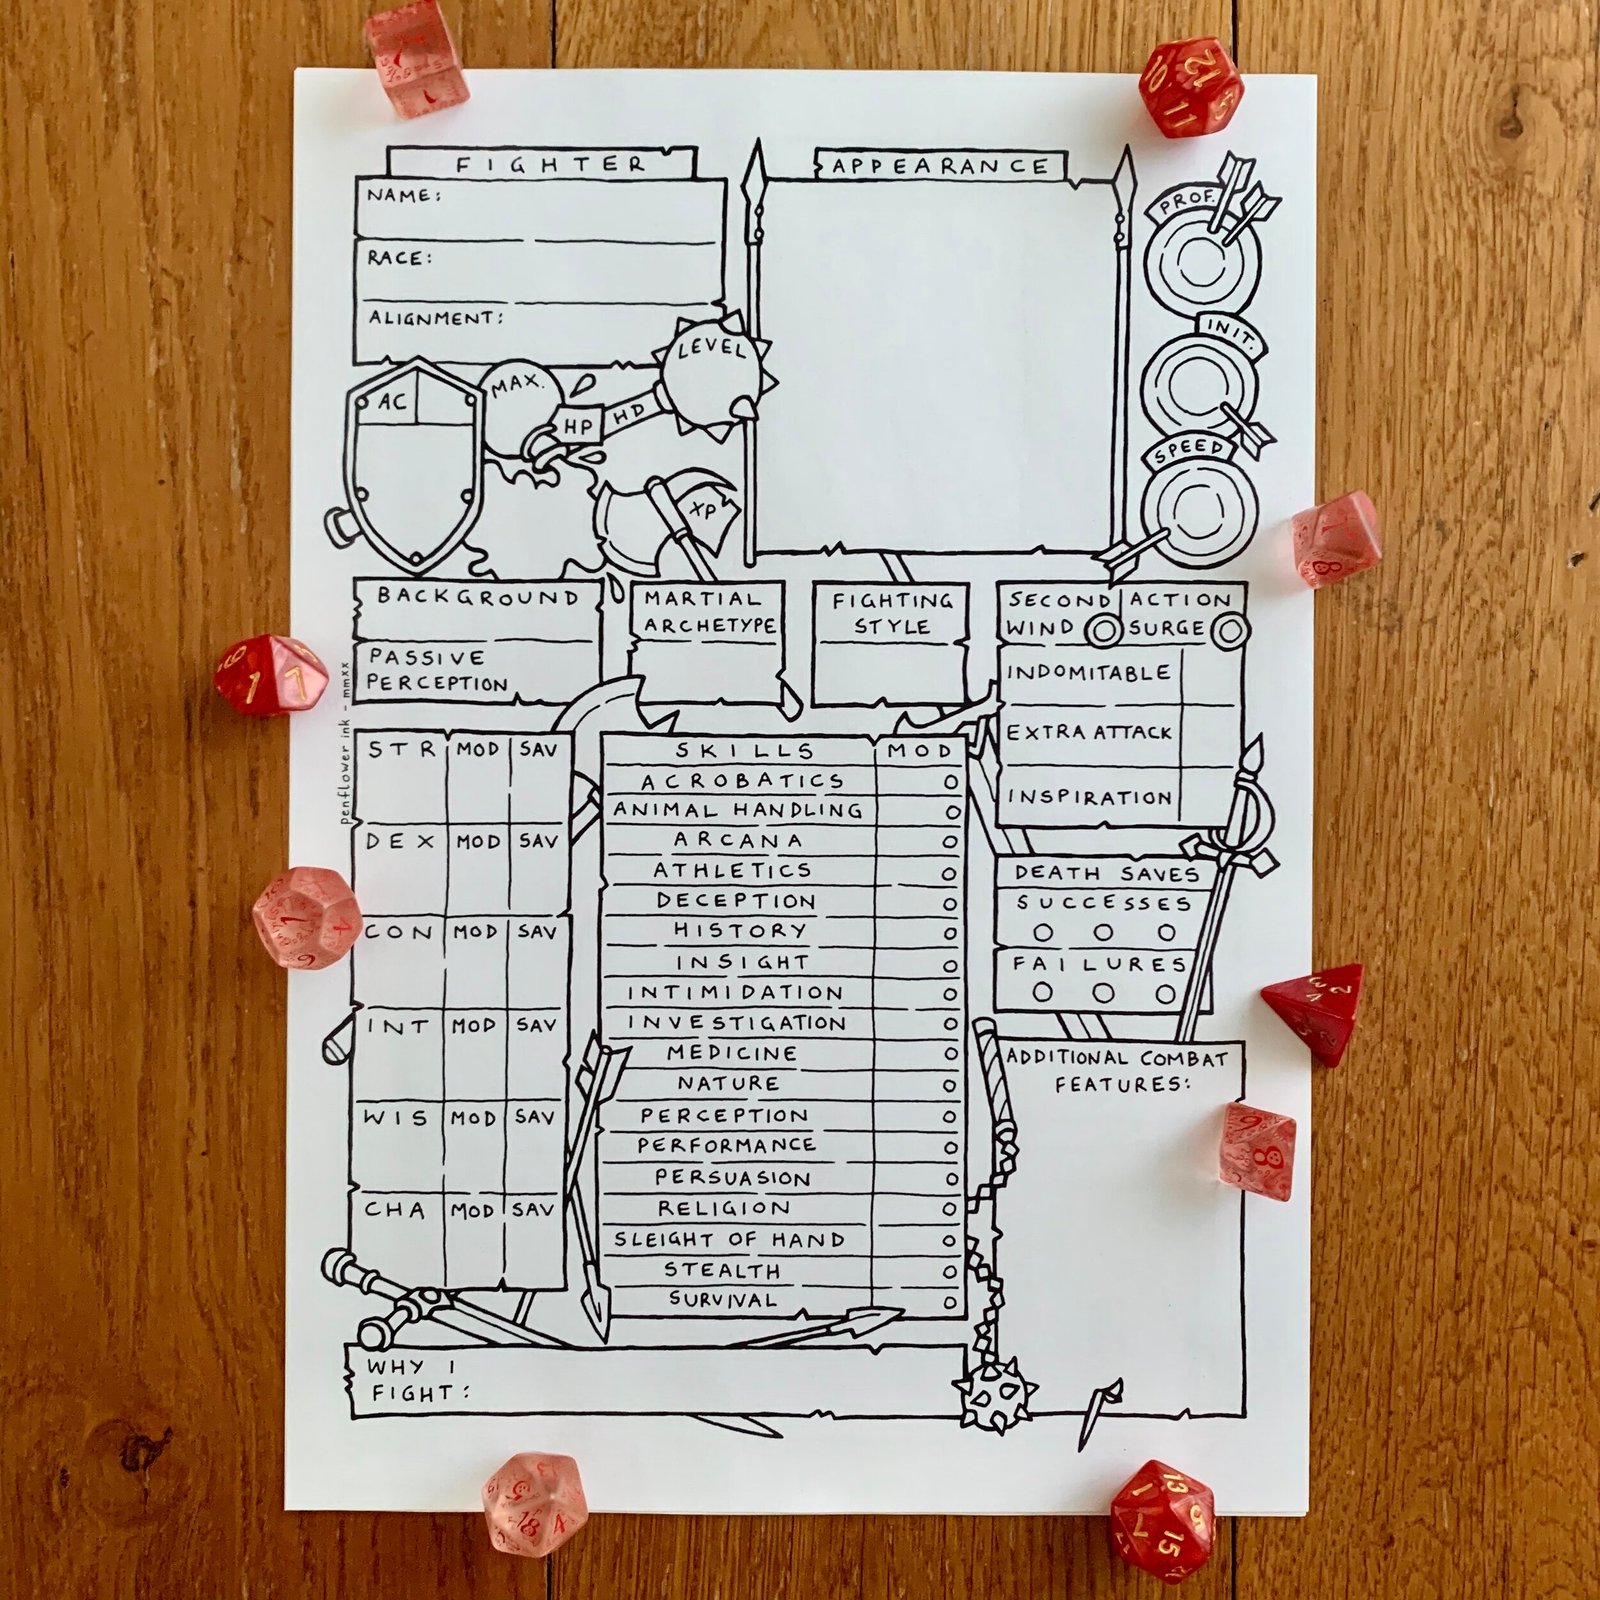 FIGHTER
NAME:
RACE:
ALIGNMENT:
APPEARANCE
PROF.
INIT.
SPEED
LEVEL
MAX.
HP
HD
AC
XP
BACKGROUND
PASSIVE
PERCEPTION
MARTIAL
ARCHETYPE
FIGHTING
STYLE
SECOND
WIND
ACTION
SURGE
INDOMITABLE
EXTRA ATTACK
INSPIRATION
penflower ink - mmxx
STR MOD SAV
DEX MOD SAV
CON MOD SAV
INT MOD SAV
WIS MOD SAV
CHA MOD SAV
SKILLS MOD
ACROBATICS
ANIMAL HANDLING
ARCANA
ATHLETICS
DECEPTION
HISTORY
INSIGHT
INTIMIDATION
INVESTIGATION
MEDICINE
NATURE
PERCEPTION
PERFORMANCE
PERSUASION
RELIGION
SLEIGHT OF HAND
STEALTH
SURVIVAL
DEATH SAVES
SUCCESSES
FAILURES
ADDITIONAL COMBAT
FEATURES:
WHY I
FIGHT:
12
10
11
8
1
7
8
18
4
13
1
5
7
15